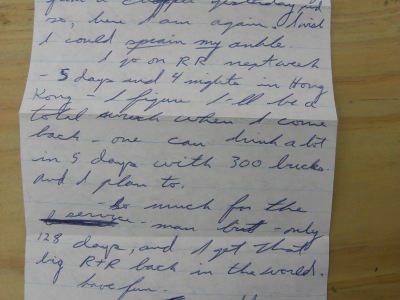 yesterday, and
so, here I am again, I wish
I could sprain my ankle.
I go on RR next week
- 5 days and 4 nights in Hong
Kong - I figure I-ll be a
total wreck when I come
back - one can drink a lot
in 5 days with 300 bucks.
and I plan to.
- So much for the
- man but - only
128 days, and I get that
big R+R back in the world.
have fun.